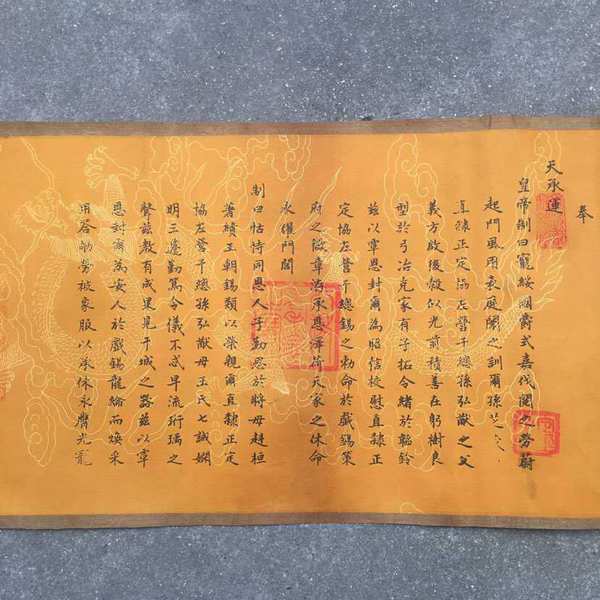 奉
天承運
皇帝制曰寵綏國爵式嘉伐閱之勞蔚
起門風用表庭闈之訓爾孫
直隸正定協左營千總孫弘猷之父
義方啟後穀似光前積善在躬樹良
型於弓冶克家有子拓令緒於韜鈐
茲以覃恩封爾為昭信校慰直隸正
定協左營千總錫之勅命於戲錫策
府之徽章洊承恩澤荷天家之休命
永耀門閭
制曰怙恃同恩人子勤思於將母赳桓
著績王朝錫類以榮親爾直隸正定
協左營千總孫弘猷母王氏七誡嫻
明三遷勤篤令儀不忒早流珩瑀之
聲茲教有成果見干城之器茲以覃
恩封爾為安人於戲錫龍綸而煥采
用答劬勞被象服以承休永膺光寵